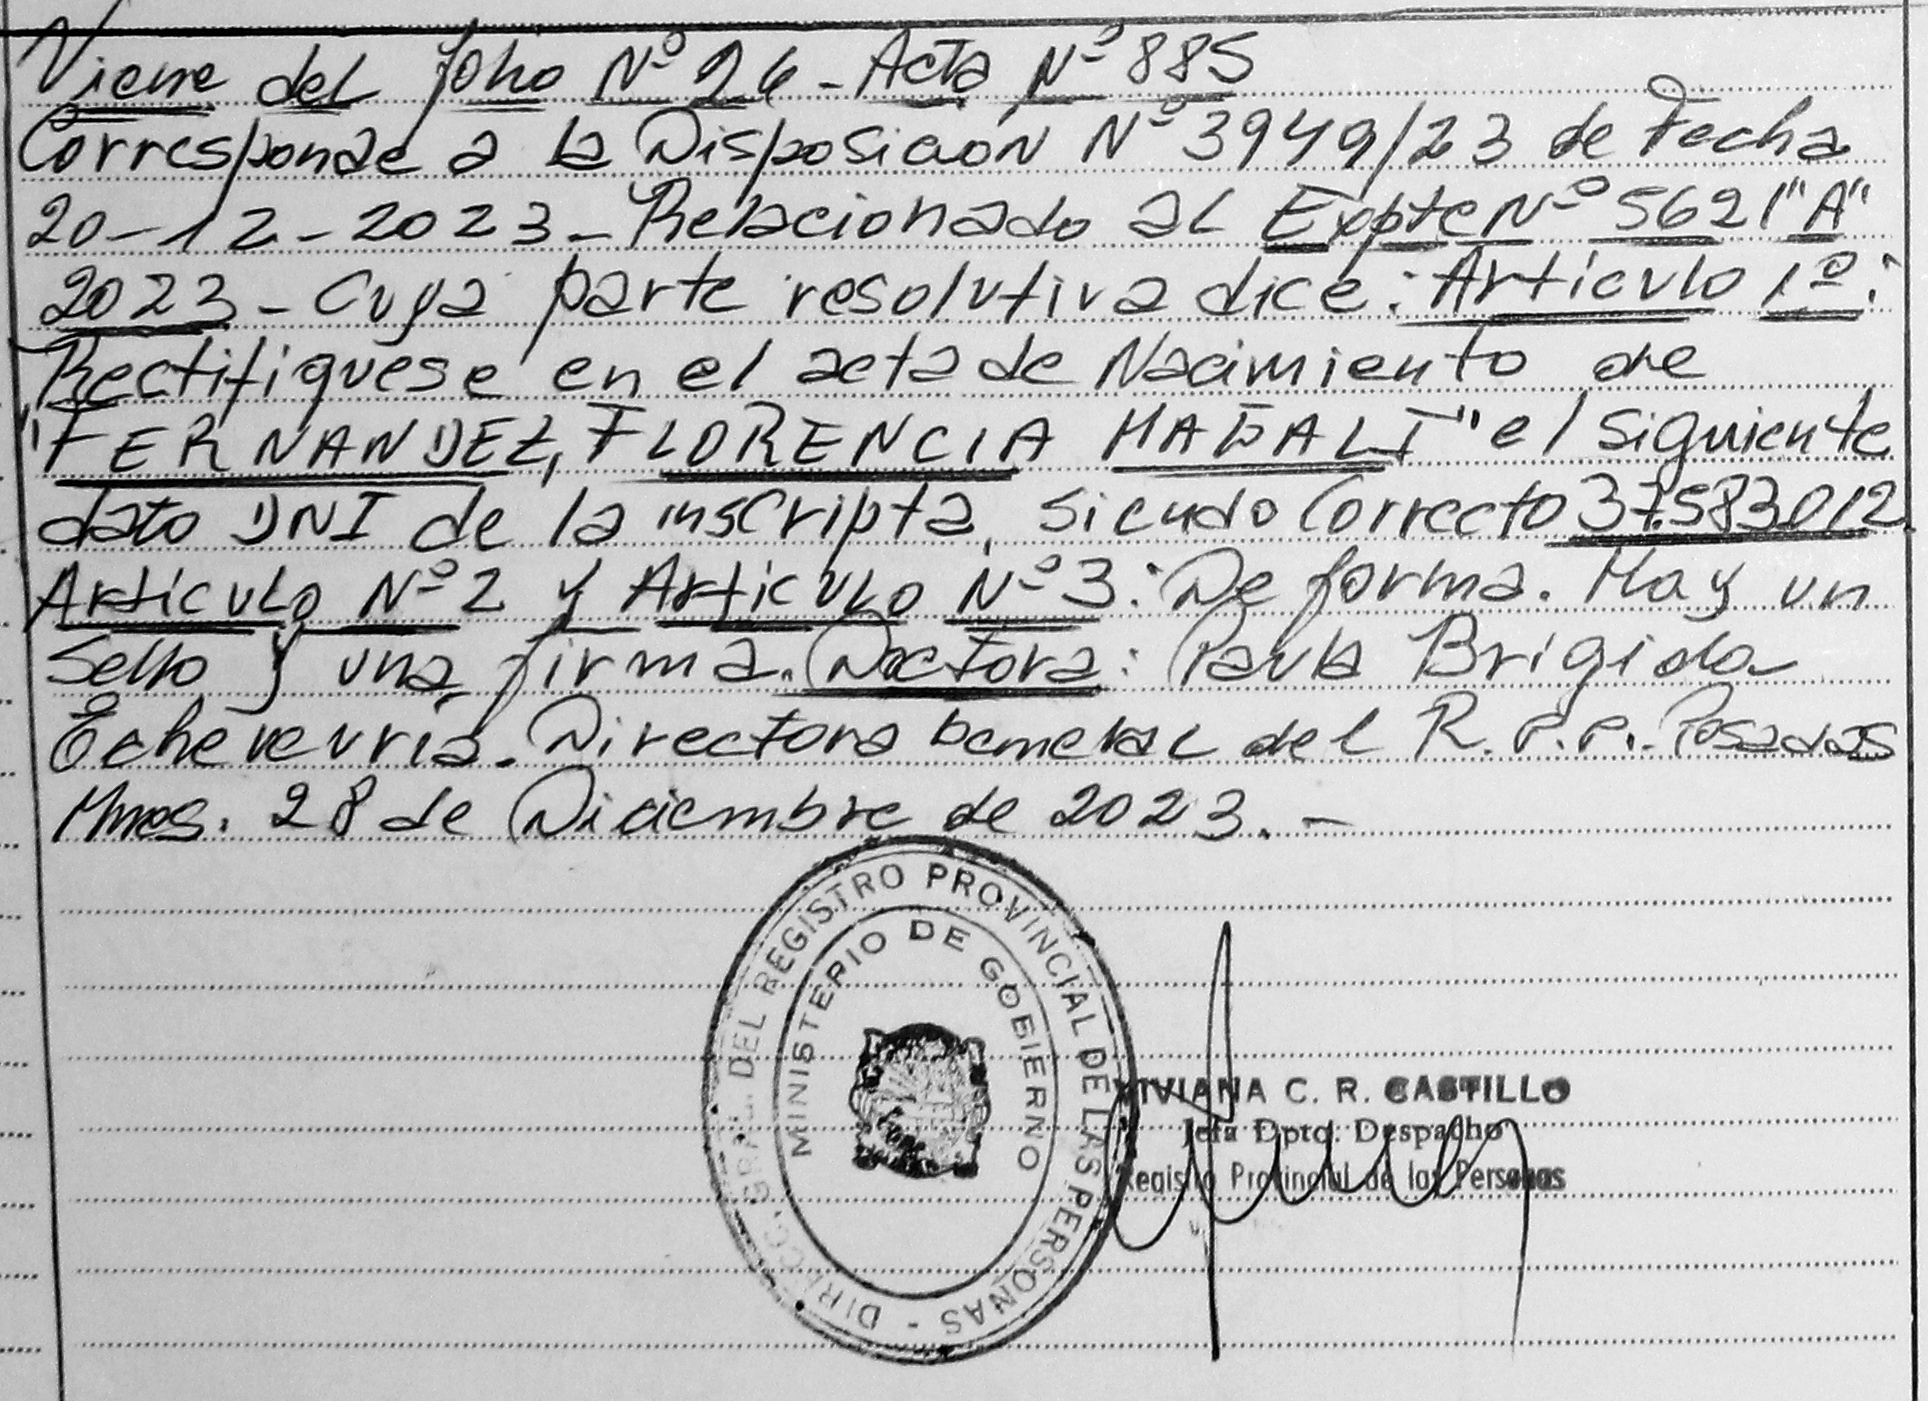 Viene del folio Nº 26 - Acta Nº 885
Corresponde a la Disposición Nº 3949/23 de Fecha
20-12-2023 - Relacionado al Expte Nº 5621 "A"
2023 - Cuya parte resolutiva dice: Articulo 1º:
Rectifiquese en el acta de Nacimiento de
"FERNANDEZ, FLORENCIA MAGALI" el siguiente
dato DNI de la inscripta, siendo Correcto 37.583.012.
Artículo Nº 2 y Articulo Nº 3: De forma. Hay un
Sello y una firma. Doctora: Paula Brigida
Echeverría. Directora General del R.P.P. Posadas
Mnes. 28 de Diciembre de 2023.-
DIRECC. GRAL. DEL REGISTRO PROVINCIAL DE LAS PERSONAS -
MINISTERIO DE GOBIERNO
VIVIANA C. R. CASTILLO
Jefa Dpto. Despacho
Registro Provincial de las Personas